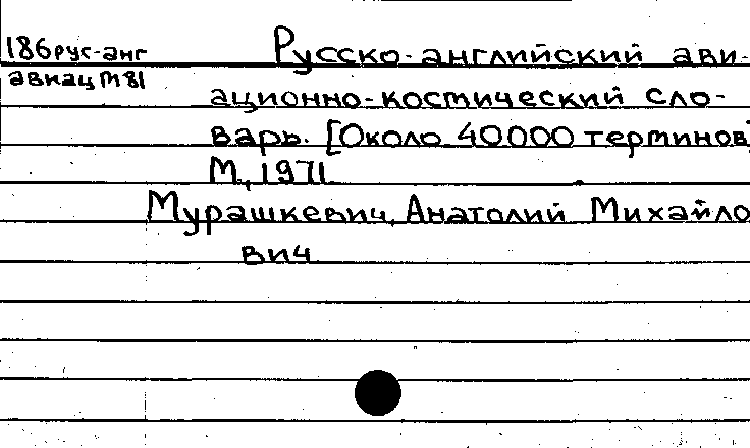 186рус-анг Русско-английский ави-
авиац М81
ационно-космический сло-
варь. [Около 40000 терминов]
М., 1971
Мурашкевич, Анатолий Михайло
вич